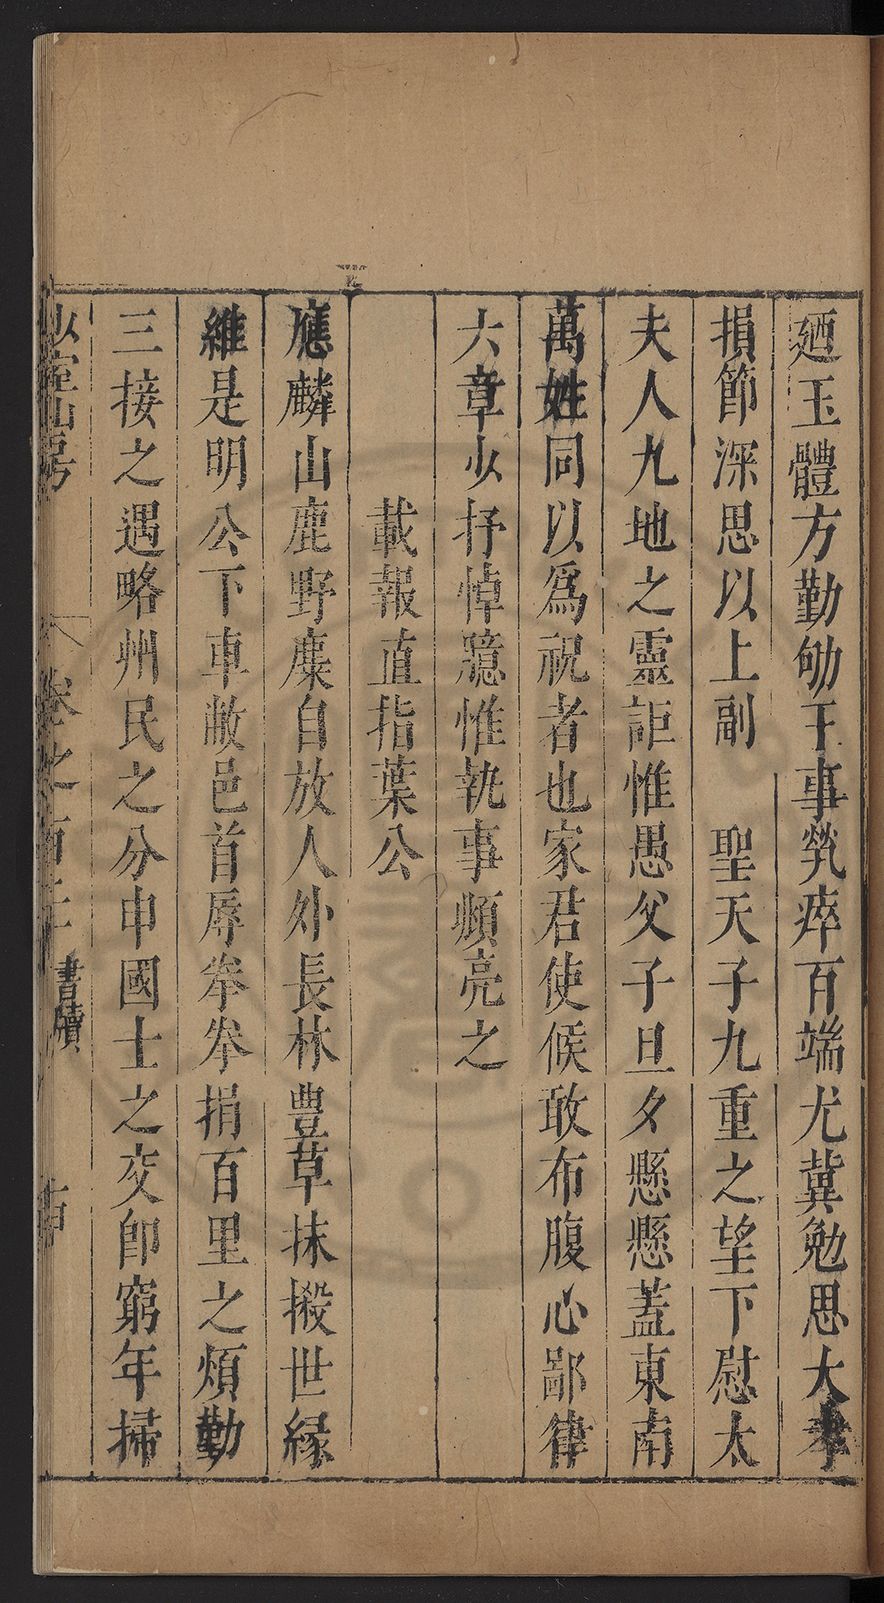 廼玉體方勤劬王事煢瘁百端尤冀勉思大孝
損節深思以上副　聖天子九重之望下慰太
夫人九地之靈詎惟愚父子旦夕懸懸蓋東南
萬姓同以爲祝者也家君使候敢布腹心鄙律
六章少抒悼臆惟執事頫亮之
載報直指葉公
應麟山鹿野麋自放人外長林豊草抹摋世縁
維是明公下車敝邑首辱牶牶捐百里之煩勤
三接之遇略州民之分申國士之交卽窮年掃
少室山房
卷之百
書牘